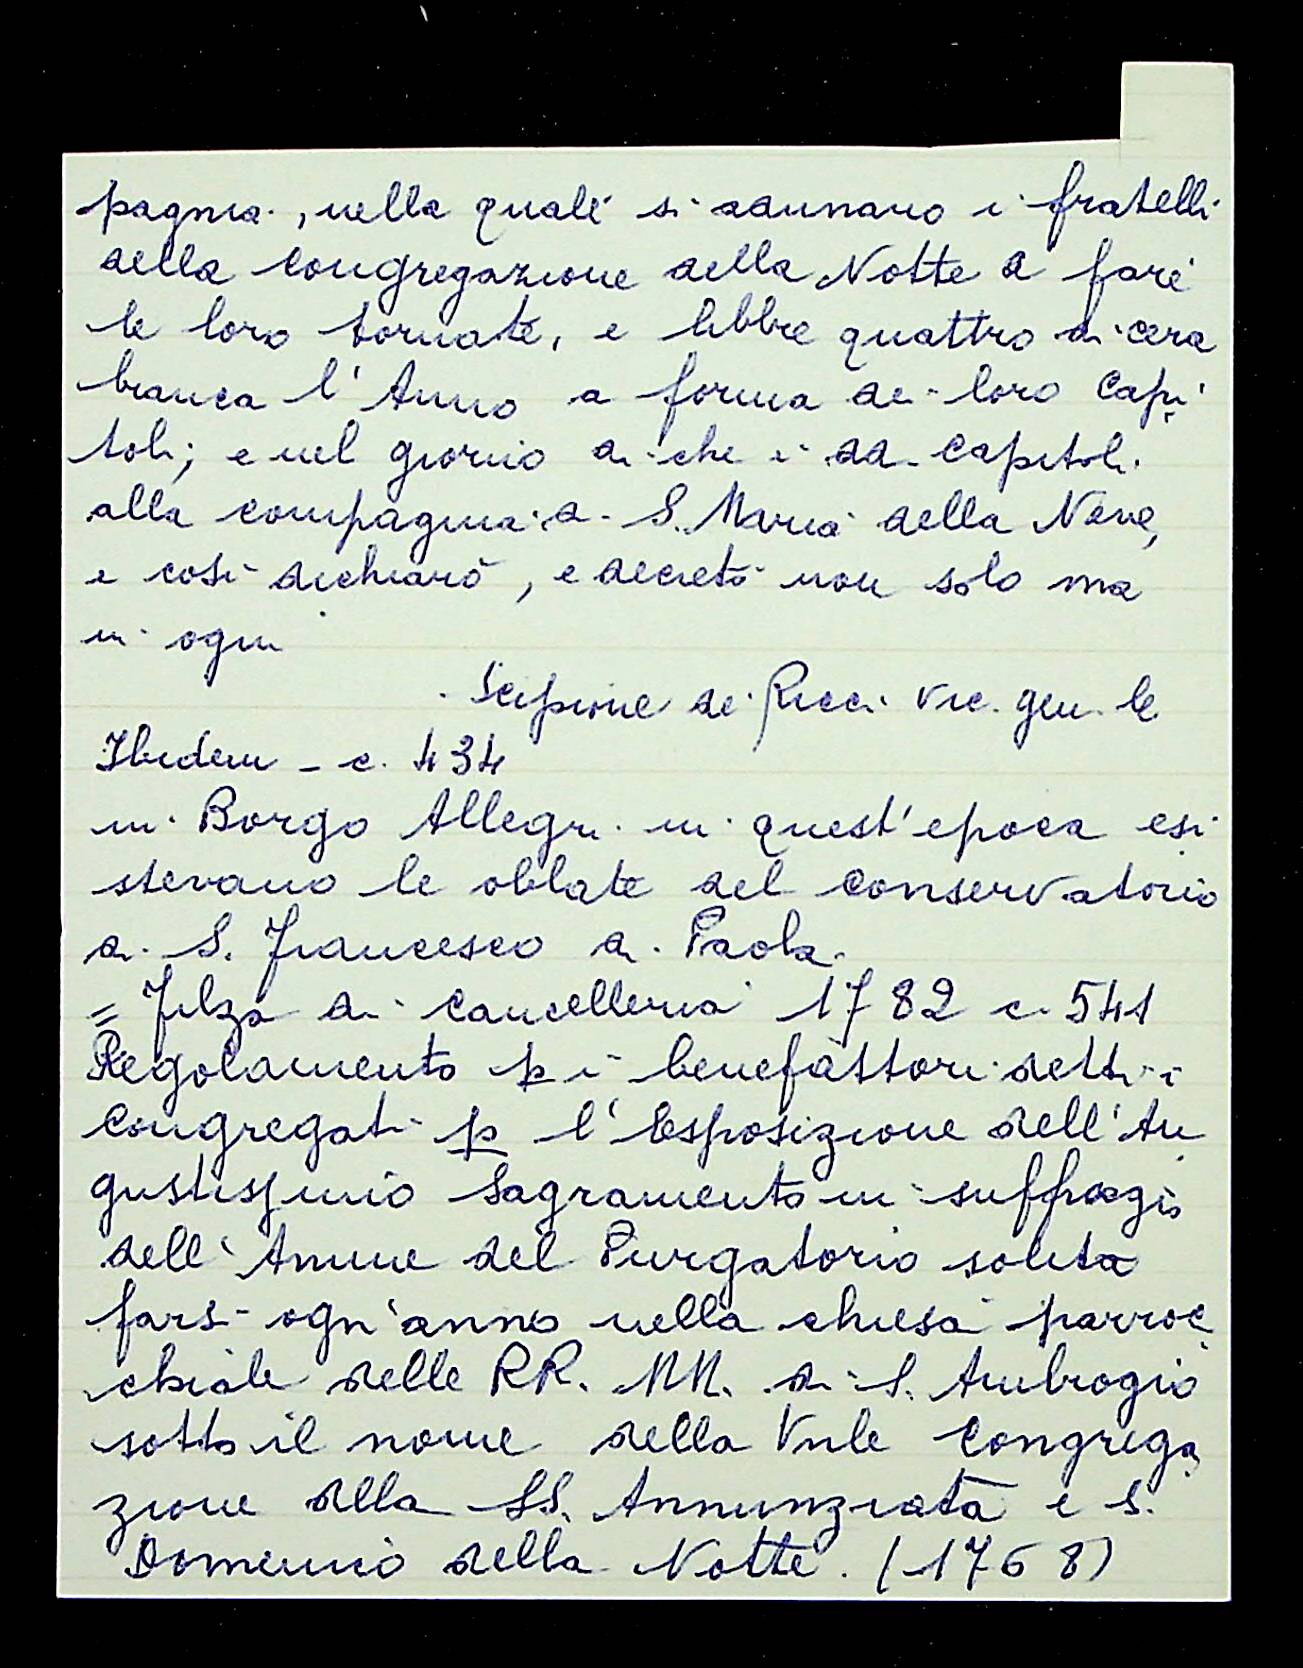 pagnia, nella quale si adunano i fratelli
della Congregazione della Notte a fare
le loro tornate, e libbre quattro di cera
bianca l'Anno a forma de loro Capi
toli; e nel giorno di che i dd. Capitoli.
alla compagnia di S. Maria della Neve,
e così dichiarò, e decretò non solo ma
in ogni
Scipione de Ricci Vic. gen.le
Ibidem - c. 434
in Borgo Allegri in quest'epoca esi
stevano le oblate del conservatorio
di S. Francesco di Paola.
= Filza di Cancelleria 1782 c. 541
Regolamento p i benefattori detti i
Congregati p l'Esposizione dell'Au
gustissimo Sagramento in suffragio
dell'Anime del Purgatorio solita
farsi ogn'anno nella chiesa parroc
chiale delle RR. MM. di S. Ambrogio
sotto il nome della Vnle Congrega
zione della SS. Annunziata e S.
Domenico della Notte. (1768)